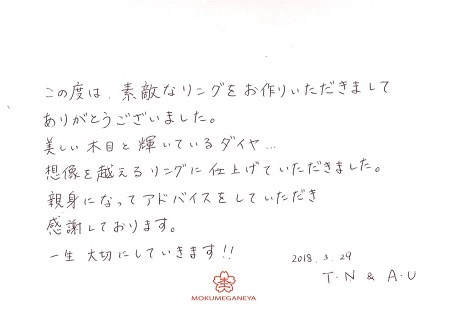 この度は、素敵なリングをお作りいただきまして
ありがとうございました。
美しい木目と輝いているダイヤ…
想像を越えるリングに仕上げていただきました。
親身になってアドバイスをしていただき
感謝しております。
一生大切にしていきます!!
2018.3.29
T.N & A.U
MOKUMEGANEYA